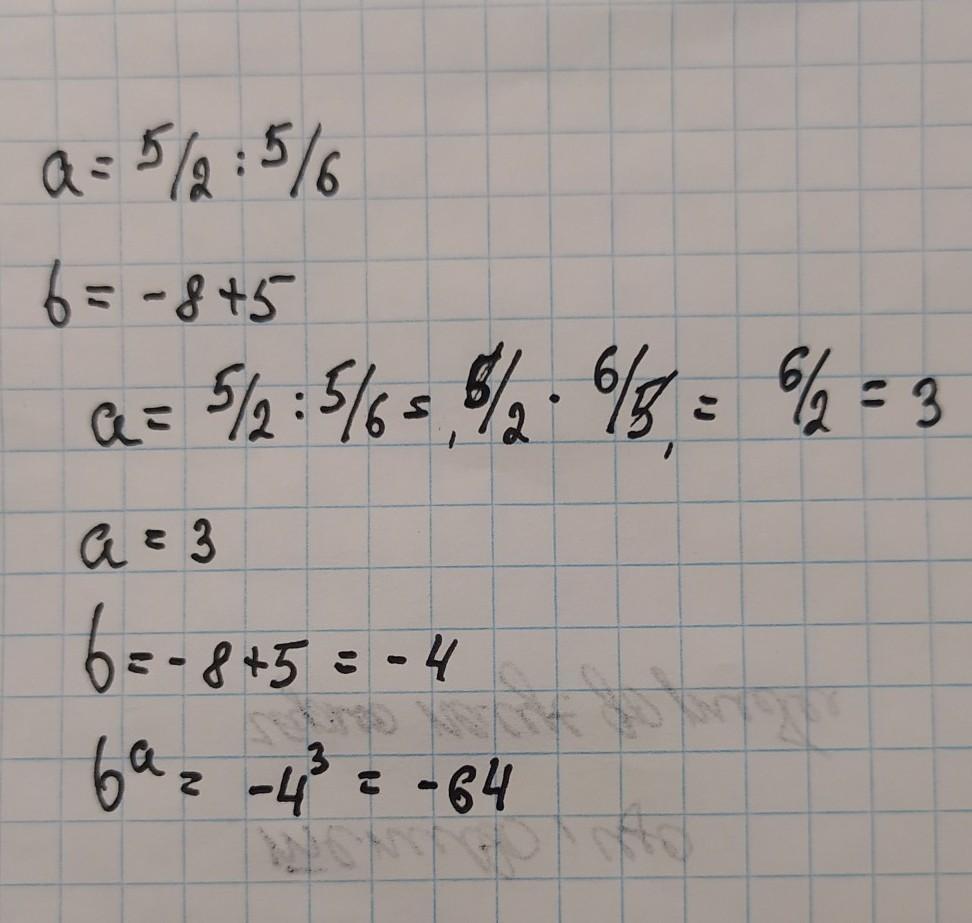 a = 5/2 : 5/6
b = -8+5
a = 5/2 : 5/6 = 5/2 · 6/5 = 6/2 = 3
a = 3
b = -8+5 = -4
b^a = -4^3 = -64